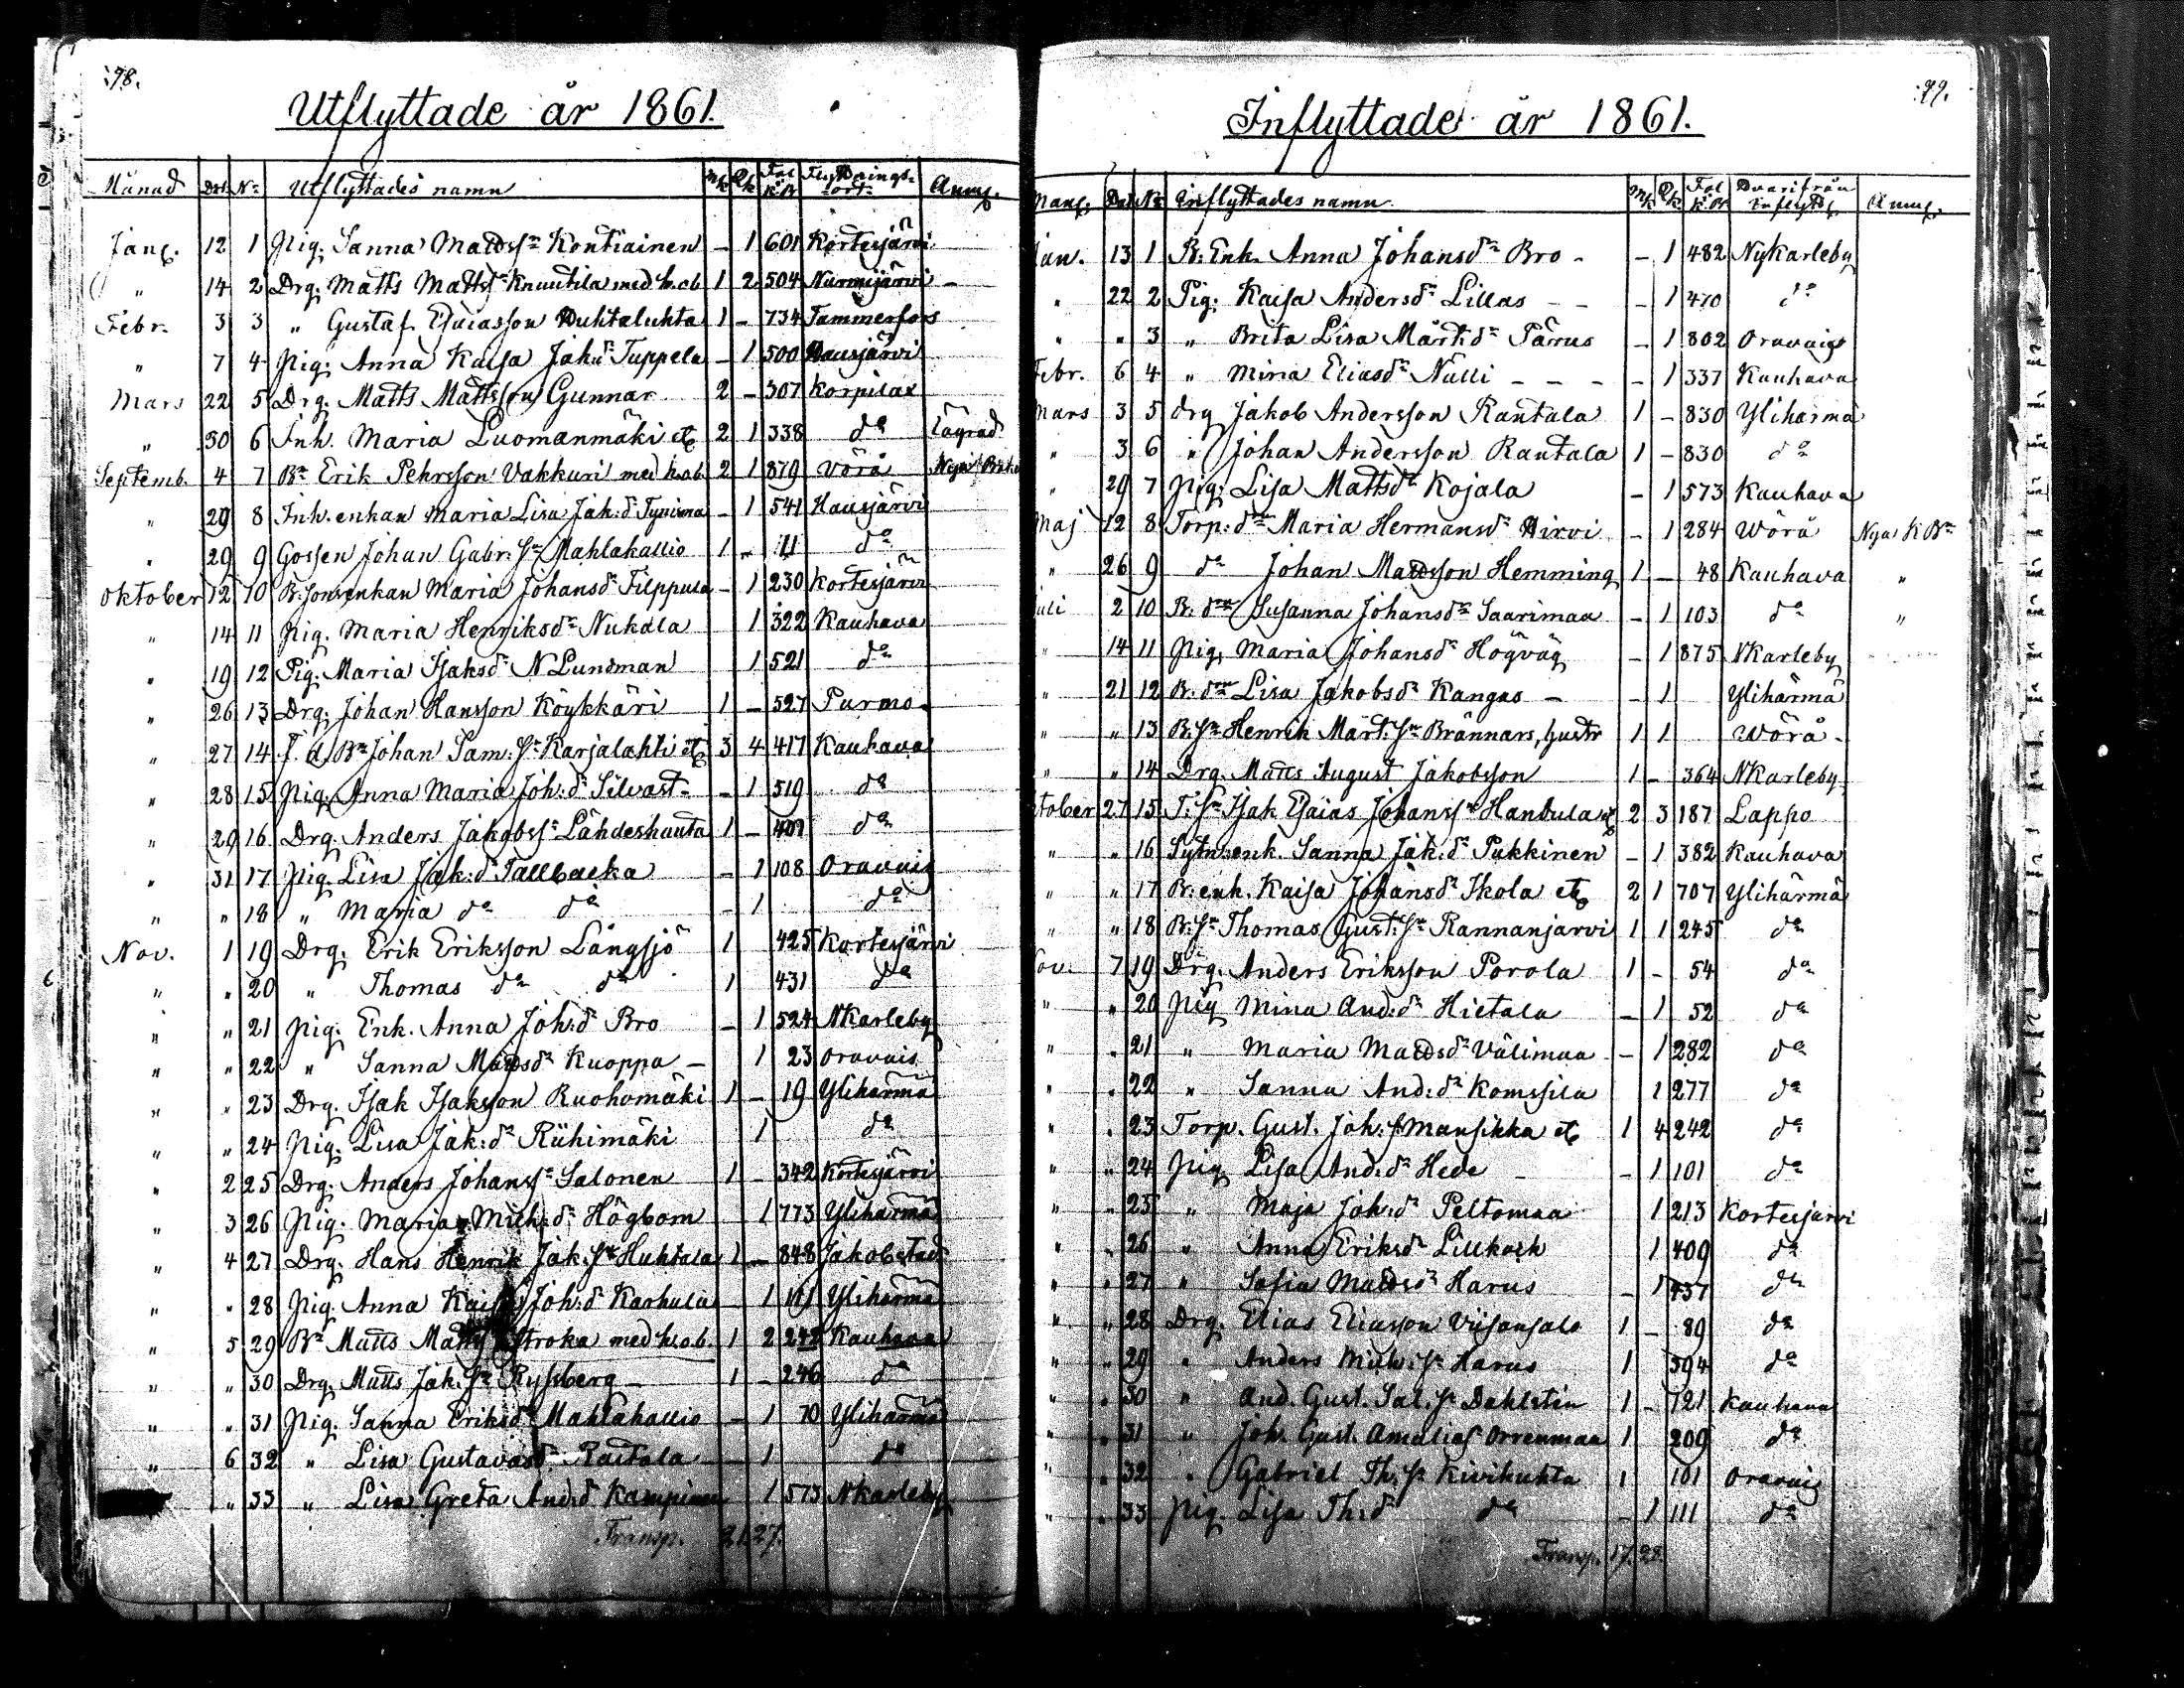 98.
Utflyttade år 1861.
Månad Dat. No Utflyttades namn Mk Qk Fol. K.B. Flyttnings-ort Anm.
Jan. 12 1 Pig. Sanna Mattss:n Kontiainen – 1 601 Kortesjärvi
" 14 2 Drg. Matts Mattss. Knuutila med h.o.b. 1 2 504 Nurmijärvi –
Febr. 3 3 " Gustaf Esaiasson Huhtaluhta 1 – 734 Tammerfors
" 7 4 Pig. Anna Kaisa Joh:d:r Tuppela – 1 500 Hausjärvi
Mars 22 5 Drg. Matts Mattsson Gunnar 2 – 307 Korpilax
" 30 6 Inh. Maria Luomanmäki etc 2 1 338 d:o
Septemb. 4 7 B:n Erik Pehrsson Vakkuri med h.o.b. 2 1 879 Vörå
" 29 8 Inh. enkan Maria Lisa Jak:d:r – 1 541 Hausjärvi
" 29 9 Gossen Johan Gabr:s:n Mahlakallio 1 – 11 d:o
Oktober 12 10 B:sonenkan Maria Johansd:r Filppula – 1 230 Kortesjärvi
" 14 11 Pig. Maria Henriksd:r Nukala 1 322 Kauhava
" 19 12 Pig. Maria Isaksd:r N Lundman 1 521 d:o
" 26 13 Drg. Johan Hansson Köykkäri 1 – 527 Purmo
" 27 14 f. d. B:n Johan Sam:s:n Karjalahti etc 3 4 417 Kauhava
" 28 15 Pig. Anna Maria Joh:d:r Silvast – – 1 519 d:o
" 29 16 Drg. Anders Jakobss:n Lähdeshauta 1 – 409 d:o
" 31 17 Pig. Lisa Jak:d:r Tallbacka – 1 108 Oravais
" " 18 " Maria d:o d:o – 1 d:o
Nov. 1 19 Drg. Erik Eriksson Långsjö 1 425 Kortesjärvi
" " 20 " Thomas d:o d:o 1 431 d:o
" " 21 Pig. Enk. Anna Joh:d Bro – 1 524 NKarleby
" " 22 " Sanna Mattsd:r Kuoppa – 1 23 Oravais
" " 23 Drg. Isak Isaksson Ruohomäki 1 – 19 Ylihärmä
" " 24 Pig. Lisa Jak:d:r Riihimäki 1 d:o
" 2 25 Drg. Anders Johanss:n Salonen 1 – 342 Kortesjärvi
" 3 26 Pig. Maria Mich:d:r Högbom 1 773 Ylihärmä
" 4 27 Drg. Hans Henrik Jak:s:n Huhtala 1 – 848 Jakobstad
" " 28 Pig. Anna Kaisa Joh:d Karhula 1 101 Ylihärmä
" 5 29 B:n Matts Mattss. Stroka med h.o.b. 1 2 242 Kauhava
" " 30 Drg. Matts Jak:s:n Ryssberg – 1 – 246 d:o
" " 31 Pig. Sanna Eriksd:r Mahlakallio – 1 70 Ylihärmä
" 6 32 " Lisa Gustavasd. Rautala – 1 d:o
" 33 " Lisa Greta And:d Kampinen 1 573 NKarleby
Transp. 21. 27.
99.
Inflyttade år 1861.
Mån. Dat No Inflyttades namn. Mk Qk Fol K.B. Hvarifrån inflytt. Anm.
Jan. 13 1 B: Enk. Anna Johansd:r Bro – – 1 482 Nykarleby
" 22 2 Pig. Kajsa Andersd:r Lillas – – – 1 470 d:o
" " 3 " Brita Lisa Märt:d:r Pärus – 1 802 Oravais
Febr. 6 4 " Mina Eliasd:r Nulli – – – – 1 337 Kauhava
Mars 3 5 Drg Jakob Andersson Rantala 1 – 830 Ylihärmä
" 3 6 " Johan Andersson Rantala 1 – 830 d:o
" 29 7 Pig. Lisa Mattsd:r Kojala – 1 573 Kauhava
Maj 12 8 Torp:d:n Maria Hermansd:r Hirvi – 1 284 Wörå Nya K B:n
" 26 9 d:o Johan Mattsson Hemming 1 – 48 Kauhava "
Juli 2 10 B. d:n Susanna Johansd:r Saarimaa – 1 103 d:o "
" 14 11 Pig. Maria Johansd:r Högväg – 1 875 NKarleby
" 21 12 B. d:n Lisa Jakobsd:r Kangas – – 1 Ylihärmä
" " 13 B. s:n Henrik Märt:s:n Brännars, hustr 1 1 Wörå
" " 14 Drg. Matts August Jakobsson 1 – 364 NKarleby
Oktober 27 15 T: s:n Isak Esaias Johanss:n Handula etc 2 3 187 Lappo
" " 16 Sytn:enk. Sanna Jak:d:r Pukkinen – 1 382 Kauhava
" " 17 B: enk. Kajsa Johansd:r Ikola etc 2 1 707 Ylihärmä
" " 18 B: s:n Thomas Gust:s:n Rannanjärvi 1 1 245 d:o
Nov. 7 19 Drg. Anders Eriksson Porola 1 – 54 d:o
" " 20 Pig Mina And:d:r Hietala – 1 52 d:o
" " 21 " Maria Mattsd:r Välimaa – 1 282 d:o
" " 22 " Sanna And:d:r Komssila 1 277 d:o
" " 23 Torp. Gust. Joh:s. Mansikka etc 1 4 242 d:o
" " 24 Pig Lisa And:d:r Hede – 1 101 d:o
" " 25 " Maja Joh:d Peltomaa 1 213 Kortesjärvi
" " 26 " Anna Eriksd:r Lillkack 1 409 d:o
" " 27 " Sofia Mattsd:r Harus – 1 437 d:o
" " 28 Drg. Elias Eliasson Viisansalo 1 – 89 d:o
" " 29 " Anders Mich:s:n Harus 1 394 d:o
" " 30 " And. Gust. Sal:s:n Dahlstin 1 – 121 Kauhava
" " 31 " Joh. Gust. Amalias. Orrenmaa 1 209 d:o
" " 32 " Gabriel Th:s:n Kivihuhta 1 101 Oravais
" " 33 Pig. Lisa Th:d:r d:o – 1 111 d:o
Transp. 17. 28.